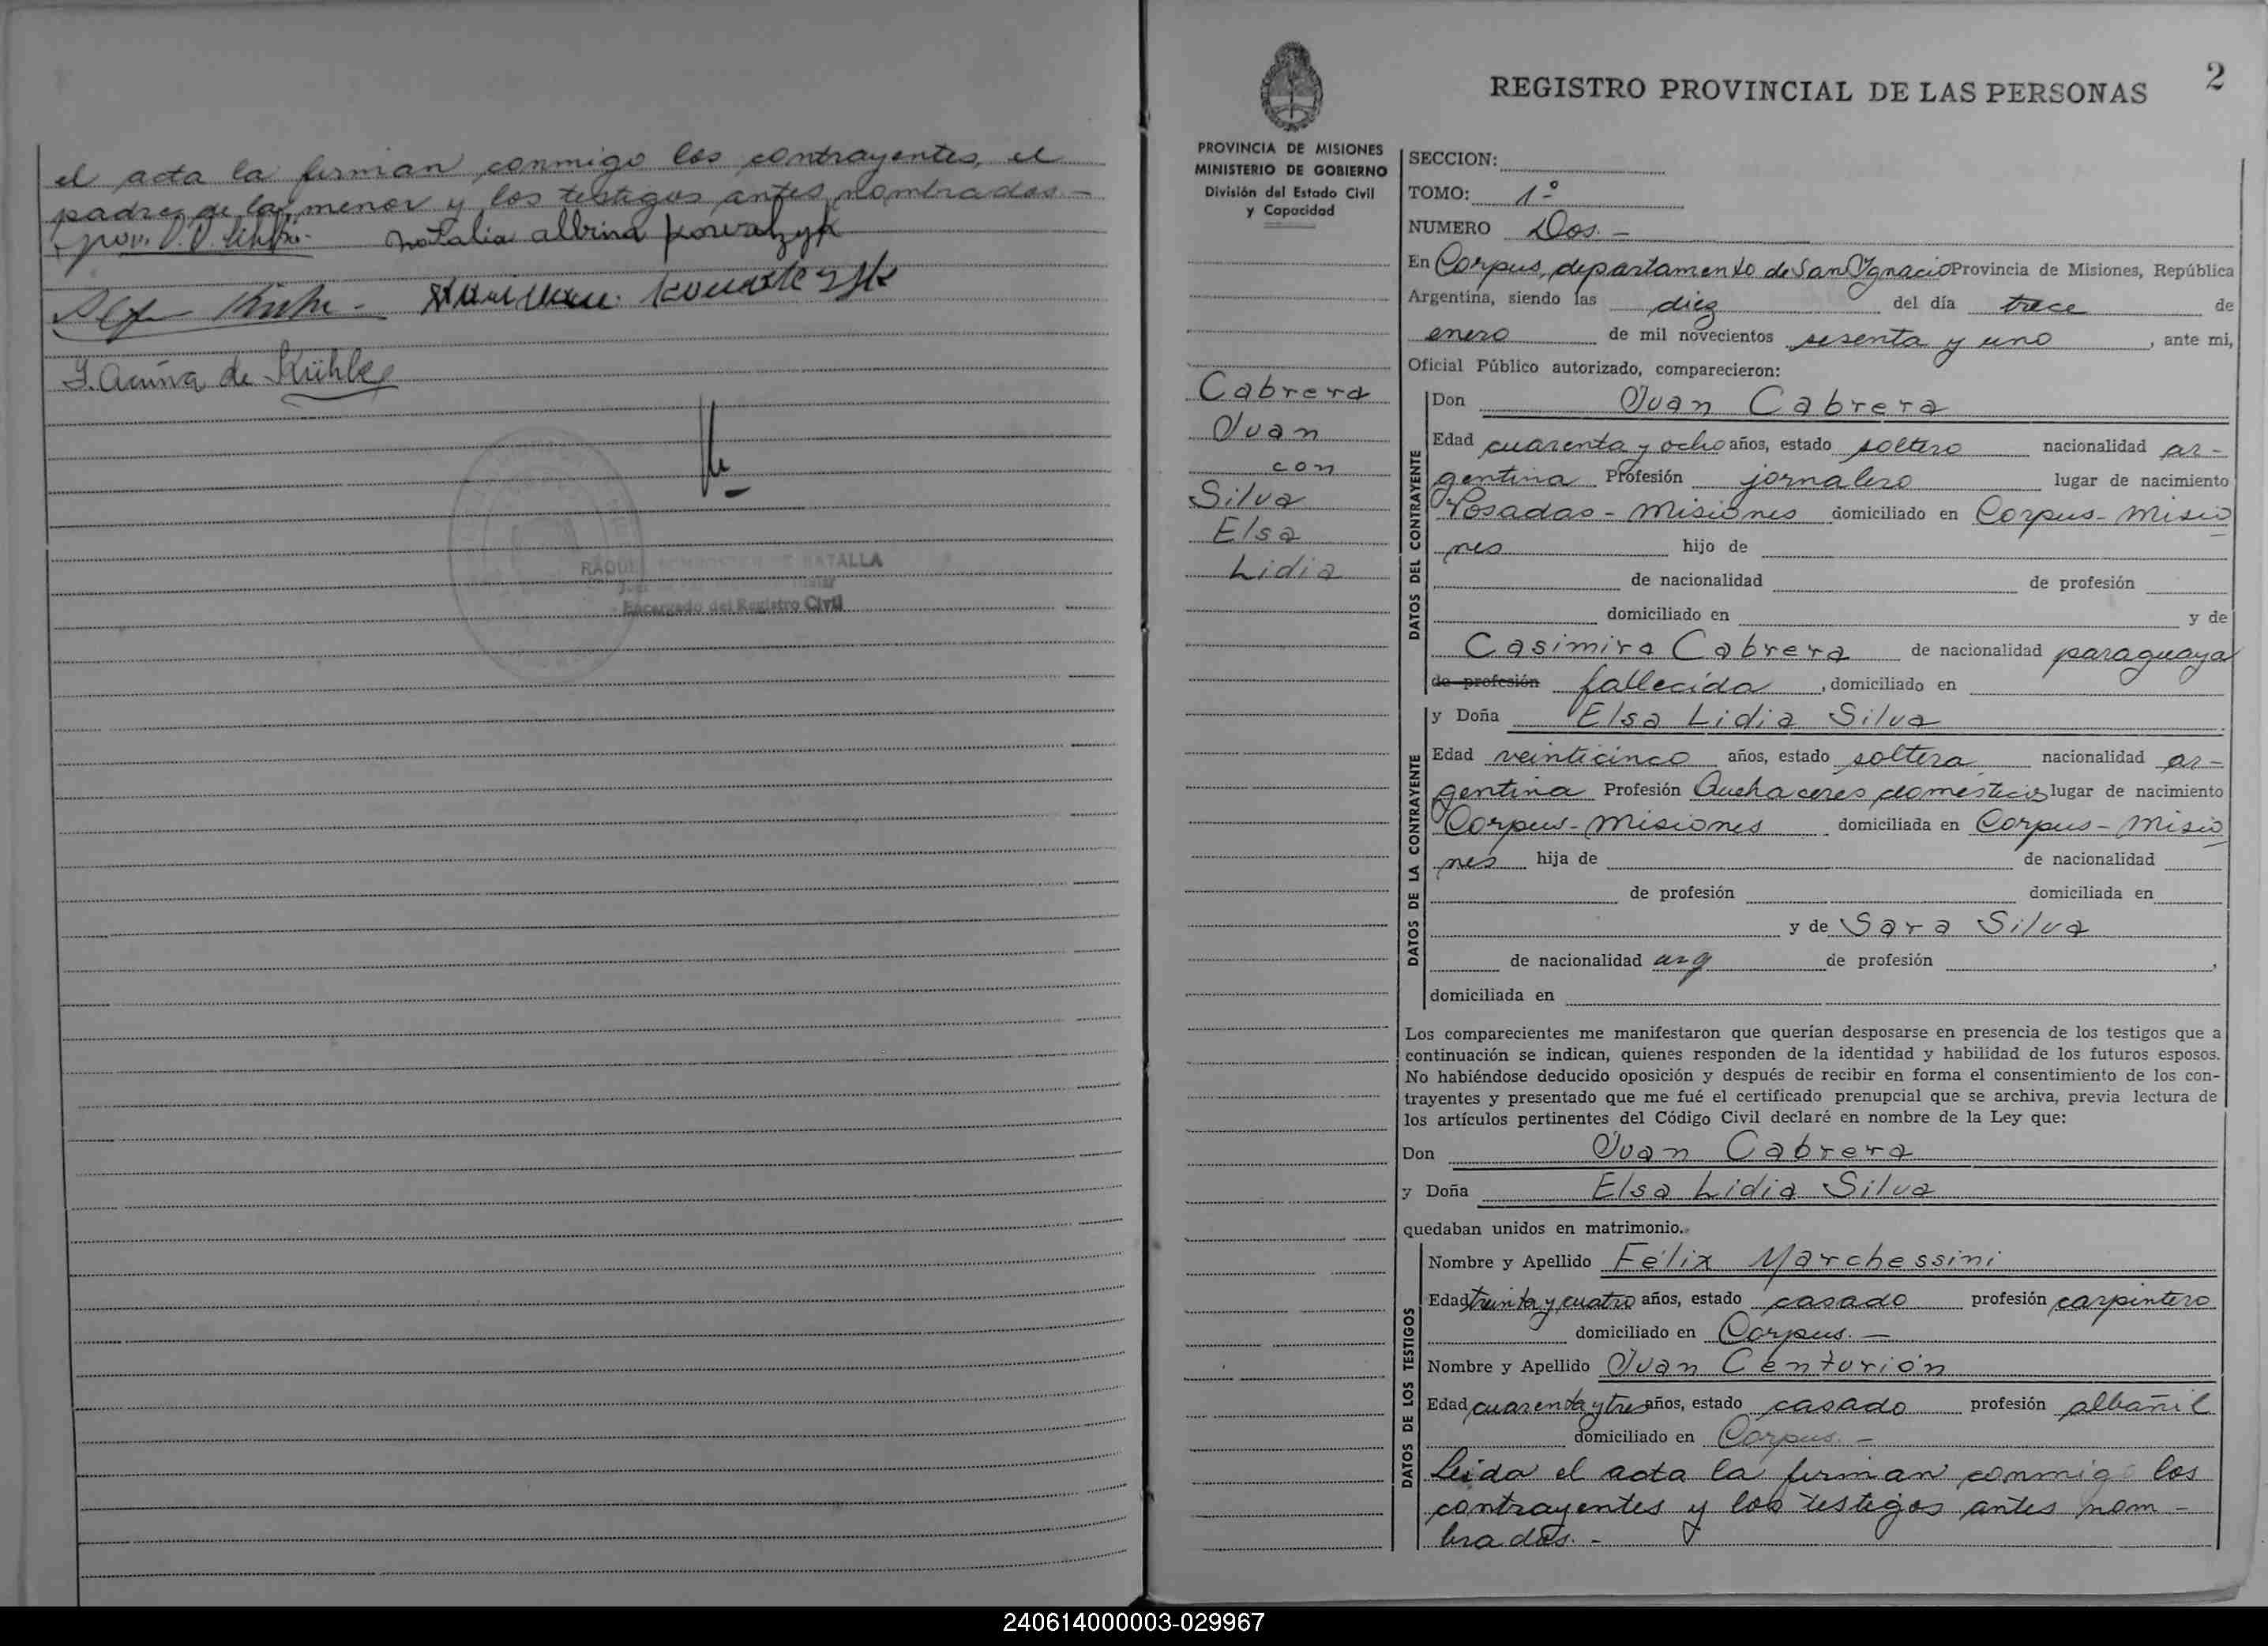 el acta la firman conmigo los contrayentes, el
padre de la menor y los testigos antes nombrados.-
Natalia Albina Kowalzyk
J. Acuña de Kühle
RAQUEL DE BATALLA
Encargado del Registro Civil
2
REGISTRO PROVINCIAL DE LAS PERSONAS
PROVINCIA DE MISIONES
MINISTERIO DE GOBIERNO
División del Estado Civil
y Capacidad
Cabrera
Juan
con
Silva
Elsa
Lidia
SECCION:
TOMO: 1º
NUMERO Dos.-
En Corpus, departamento de San Ignacio Provincia de Misiones, República
Argentina, siendo las diez del día trece de
enero de mil novecientos sesenta y uno, ante mi,
Oficial Público autorizado, comparecieron:
DATOS DEL CONTRAYENTE
Don Juan Cabrera
Edad cuarenta y ocho años, estado soltero nacionalidad ar-
gentina Profesión jornalero lugar de nacimiento
Posadas - Misiones domiciliado en Corpus - Misio
nes hijo de
de nacionalidad de profesión
domiciliado en y de
Casimira Cabrera de nacionalidad paraguaya
de profesión fallecida, domiciliado en
DATOS DE LA CONTRAYENTE
y Doña Elsa Lidia Silva
Edad veinticinco años, estado soltera nacionalidad ar-
gentina Profesión Quehaceres domésticos lugar de nacimiento
Corpus - Misiones domiciliada en Corpus - Misio
nes hija de de nacionalidad
de profesión domiciliada en
y de Sara Silva
de nacionalidad arg de profesión ,
domiciliada en
Los comparecientes me manifestaron que querían desposarse en presencia de los testigos que a
continuación se indican, quienes responden de la identidad y habilidad de los futuros esposos.
No habiéndose deducido oposición y después de recibir en forma el consentimiento de los con-
trayentes y presentado que me fué el certificado prenupcial que se archiva, previa lectura de
los artículos pertinentes del Código Civil declaré en nombre de la Ley que:
Don Juan Cabrera
y Doña Elsa Lidia Silva
quedaban unidos en matrimonio.
DATOS DE LOS TESTIGOS
Nombre y Apellido Félix Marchessini
Edad treinta y cuatro años, estado casado profesión carpintero
domiciliado en Corpus.-
Nombre y Apellido Juan Centurión
Edad cuarenta y tres años, estado casado profesión albañil
domiciliado en Corpus.-
Leida el acta la firman conmigo los
contrayentes y los testigos antes nom-
brados.-
240614000003-029967